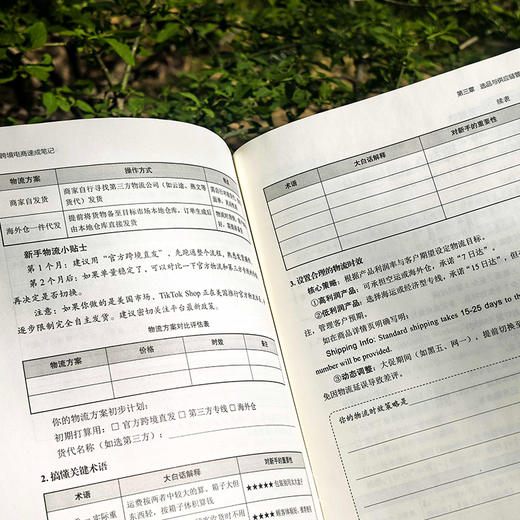 跨境电商速成笔记
物流方案 操作方式
商家自发货 商家自行寻找第三方物流公司（如云途、燕文等
货代）发货
海外仓一件代发 提前将货物备至目标市场本地仓库，订单生成后
由本地仓库直接发货
新手物流小贴士
第1个月：建议用“官方跨境直发”，先跑通整个流程，熟悉
第2个月后：如果单量稳定了，可以对比一下官方物流和第三方专线的
再决定是否切换。
注意：如果你做的是美国市场，TikTok Shop正在美国推行官方物流
逐步限制完全自主发货。建议密切关注平台最新政策。
物流方案对比评估表
物流方案 价格 时效 备注
你的物流方案初步计划：
初期打算用：□官方跨境直发 □第三方专线 □海外仓
货代名称（如选第三方）：
2. 搞懂关键术语
术语 大白话解释 对新手的重要性
运费按两者中较大的算。箱子大但
东西轻，按箱子体积算钱
★★★★★
实际重
第三章 选品与供应链管
续表
术语 大白话解释 对新手的重要性
3. 设置合理的物流时效
核心策略：根据产品利润率与客户期望设定物流目标。
①高利润产品：可承担空运或海外仓，承诺“7日达”。
②低利润产品：选择海运或经济型专线，承诺“15日达”，但
注，管理客户期望。
如在商品详情页明确写明：
Shipping Info: Standard shipping takes 15-25 days to
number will be provided.
③动态调整：大促期间（如黑五、网一），提前切换
免因物流延误导致差评。
你的物流时效策略是